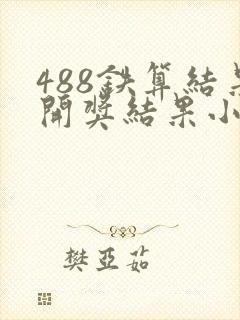 488鉄算结果
開獎结果小
樊亞茹